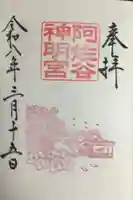 奉拝
阿佐谷
神明宮
令和八年二月十五日